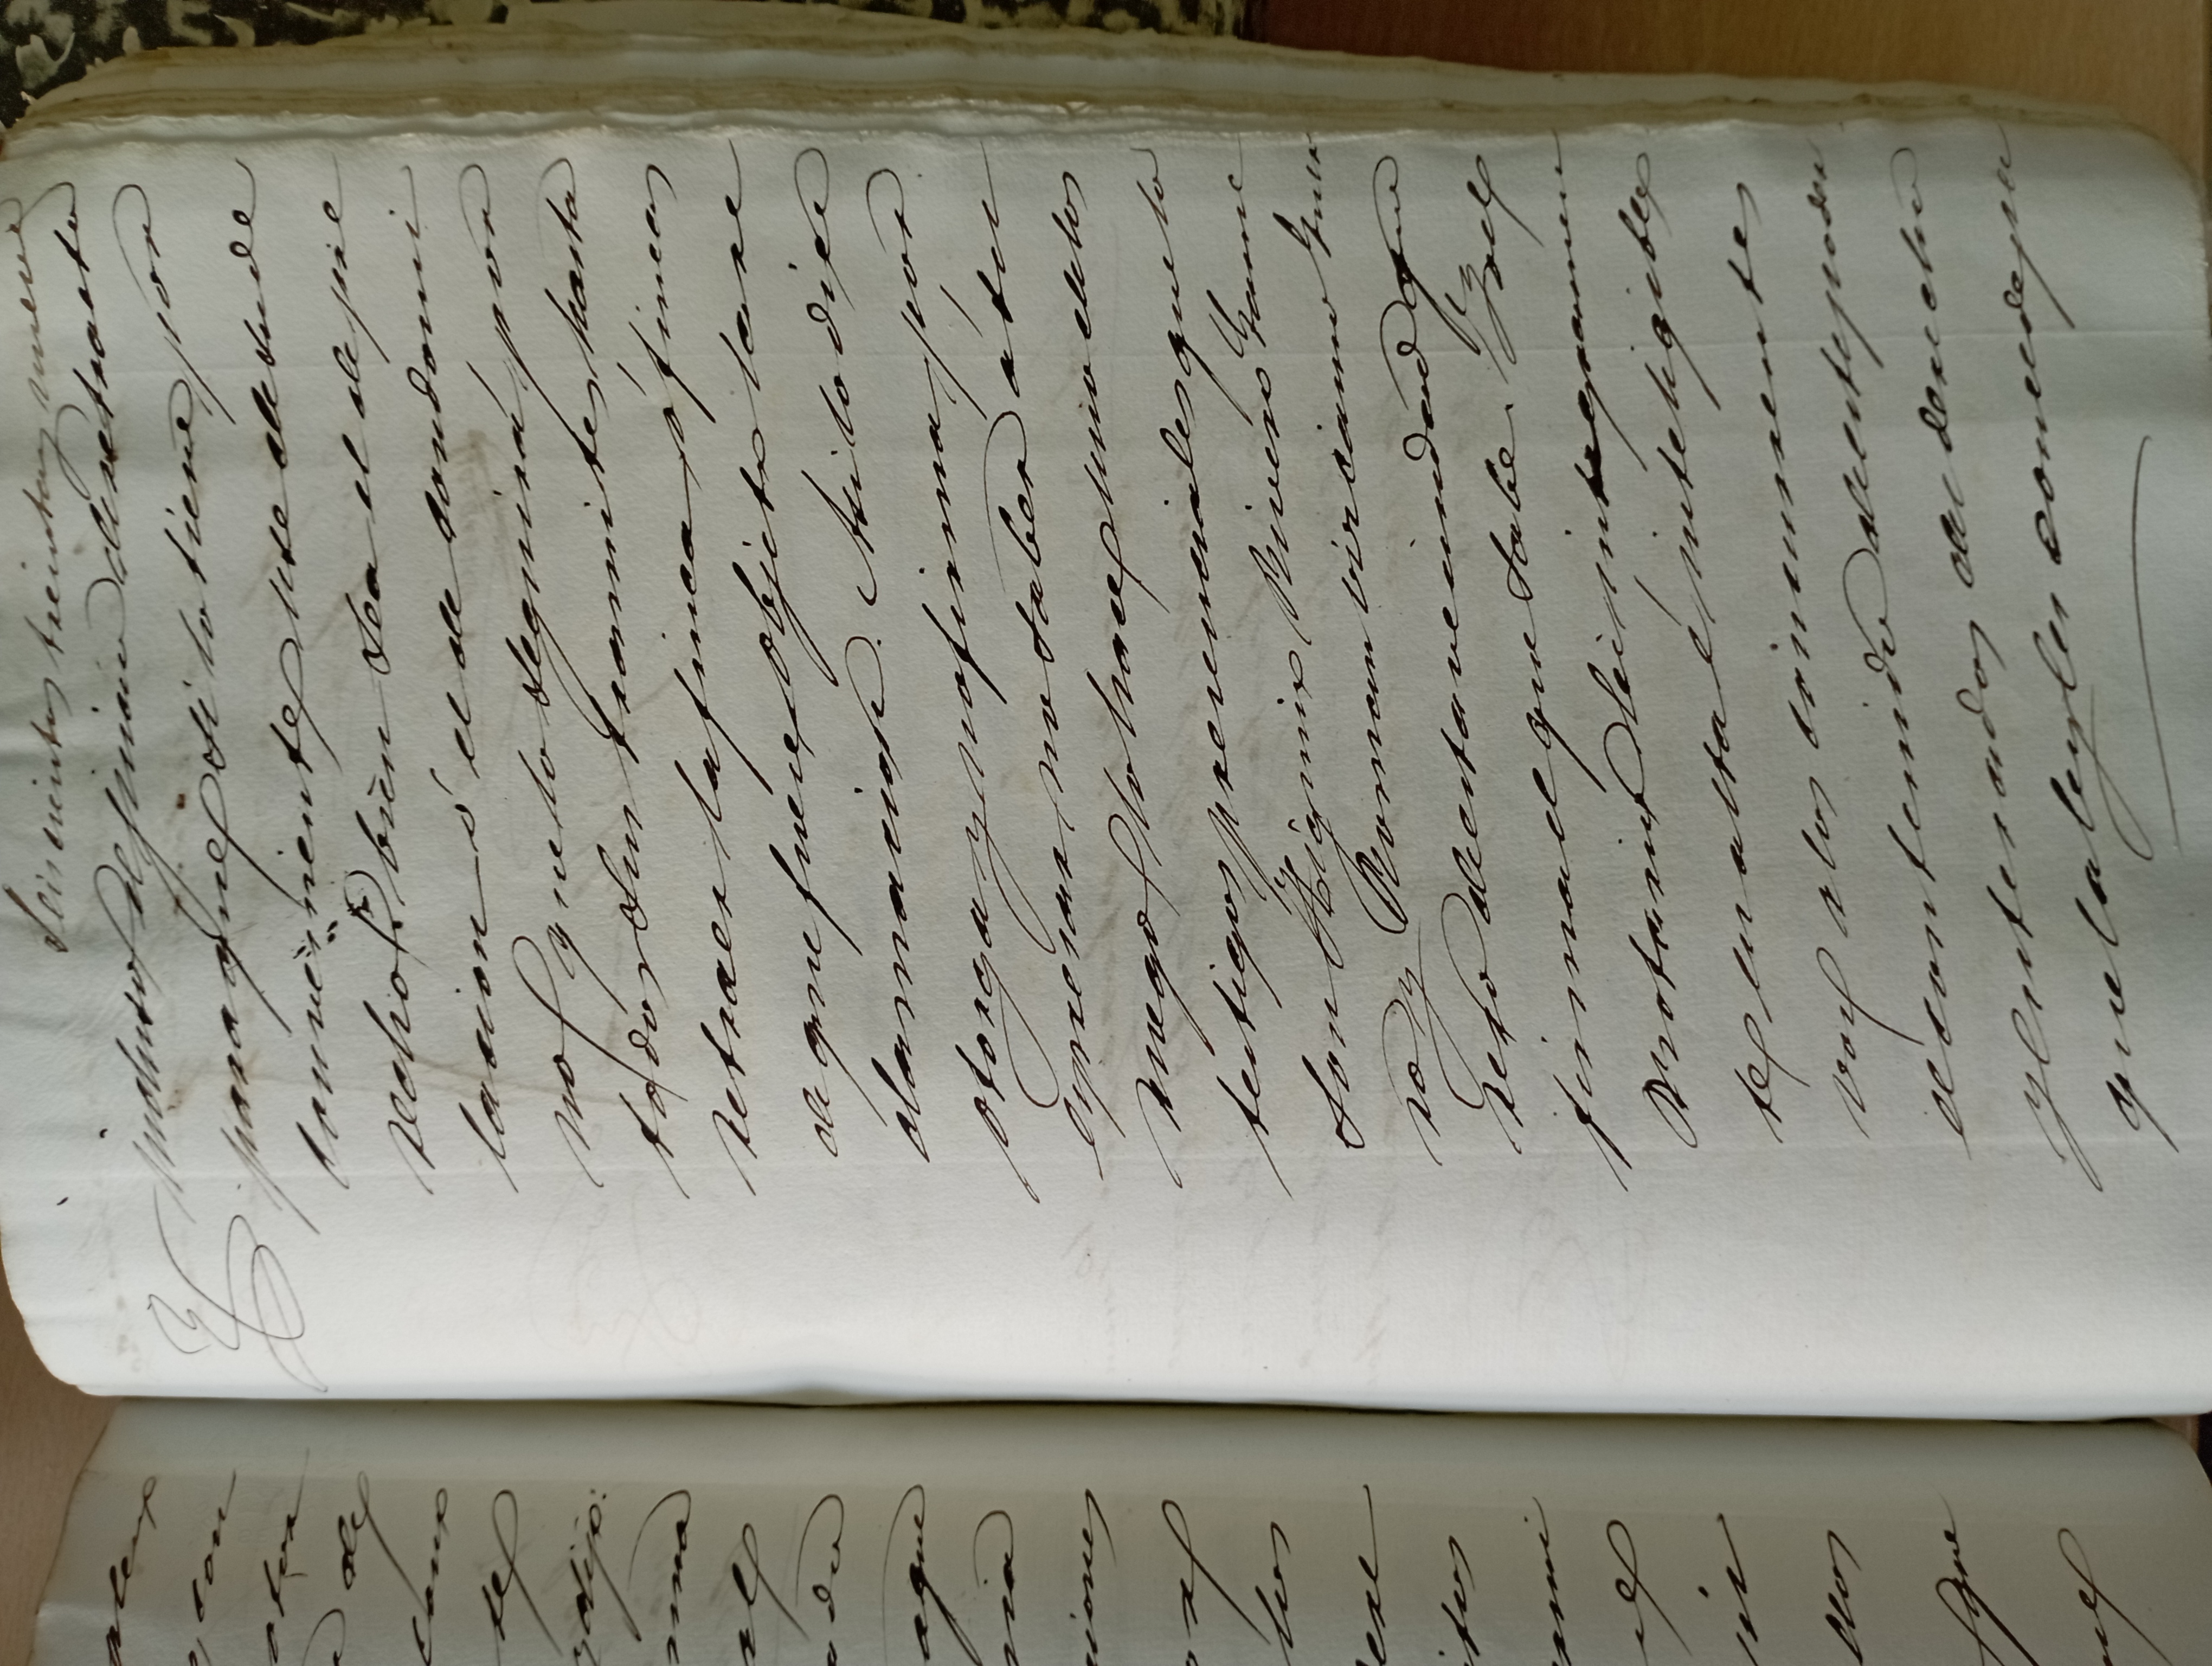 Seiscientos treinta y nueve
incluso el juicio de retracto
para que si lo tiene por
conveniente use de su de
recho bien sea el de pre
lacion ó el de condomi
no que lo seguirá por
todos sus tramites hasta
retraer la finca ó fincas
de que fuere objeto la re
clamacion. Asi lo dice
otorga y no firma por
espresar no saber á su
ruego lo hace uno de los
testigos presenciales que lo
son Higinio Rivero Rome
ro y Roman Vizcaino Guer
rero de esta vecindad que
firma el que sabe. Yo el
Notario lei integramen
te en alta é inteligible
voz a los concurrentes
el contenido de este poder
y enterados del derecho
que la ley les concede pa
alex
, con
otor
de
conv
se
y dijo:
una
ado
a que
ria
ciones
los
ere
itos
omi
el
in
dos
que